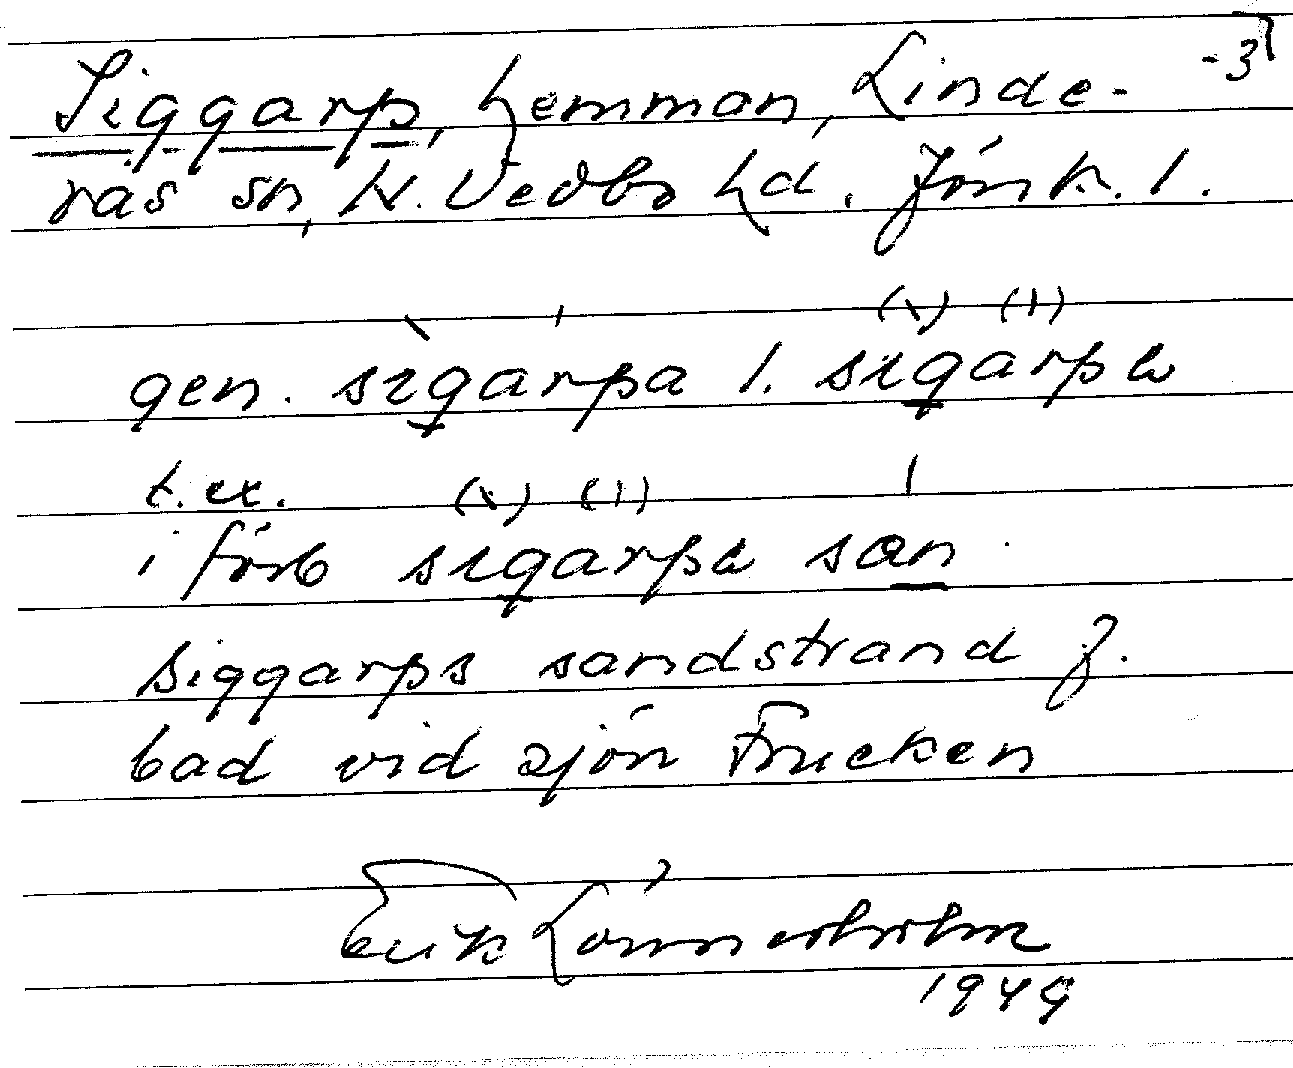 -3
Siggarp, hemman, Linde-
rås sn, N. Vedbo hd. Jönk. l.
gen. sıgarpa l. sıgarpa
t. ex.
i förb sıgarpa san
Siggarps sandstrand f.
bad vid sjön Frucken
Erik Lönnerholm
1949